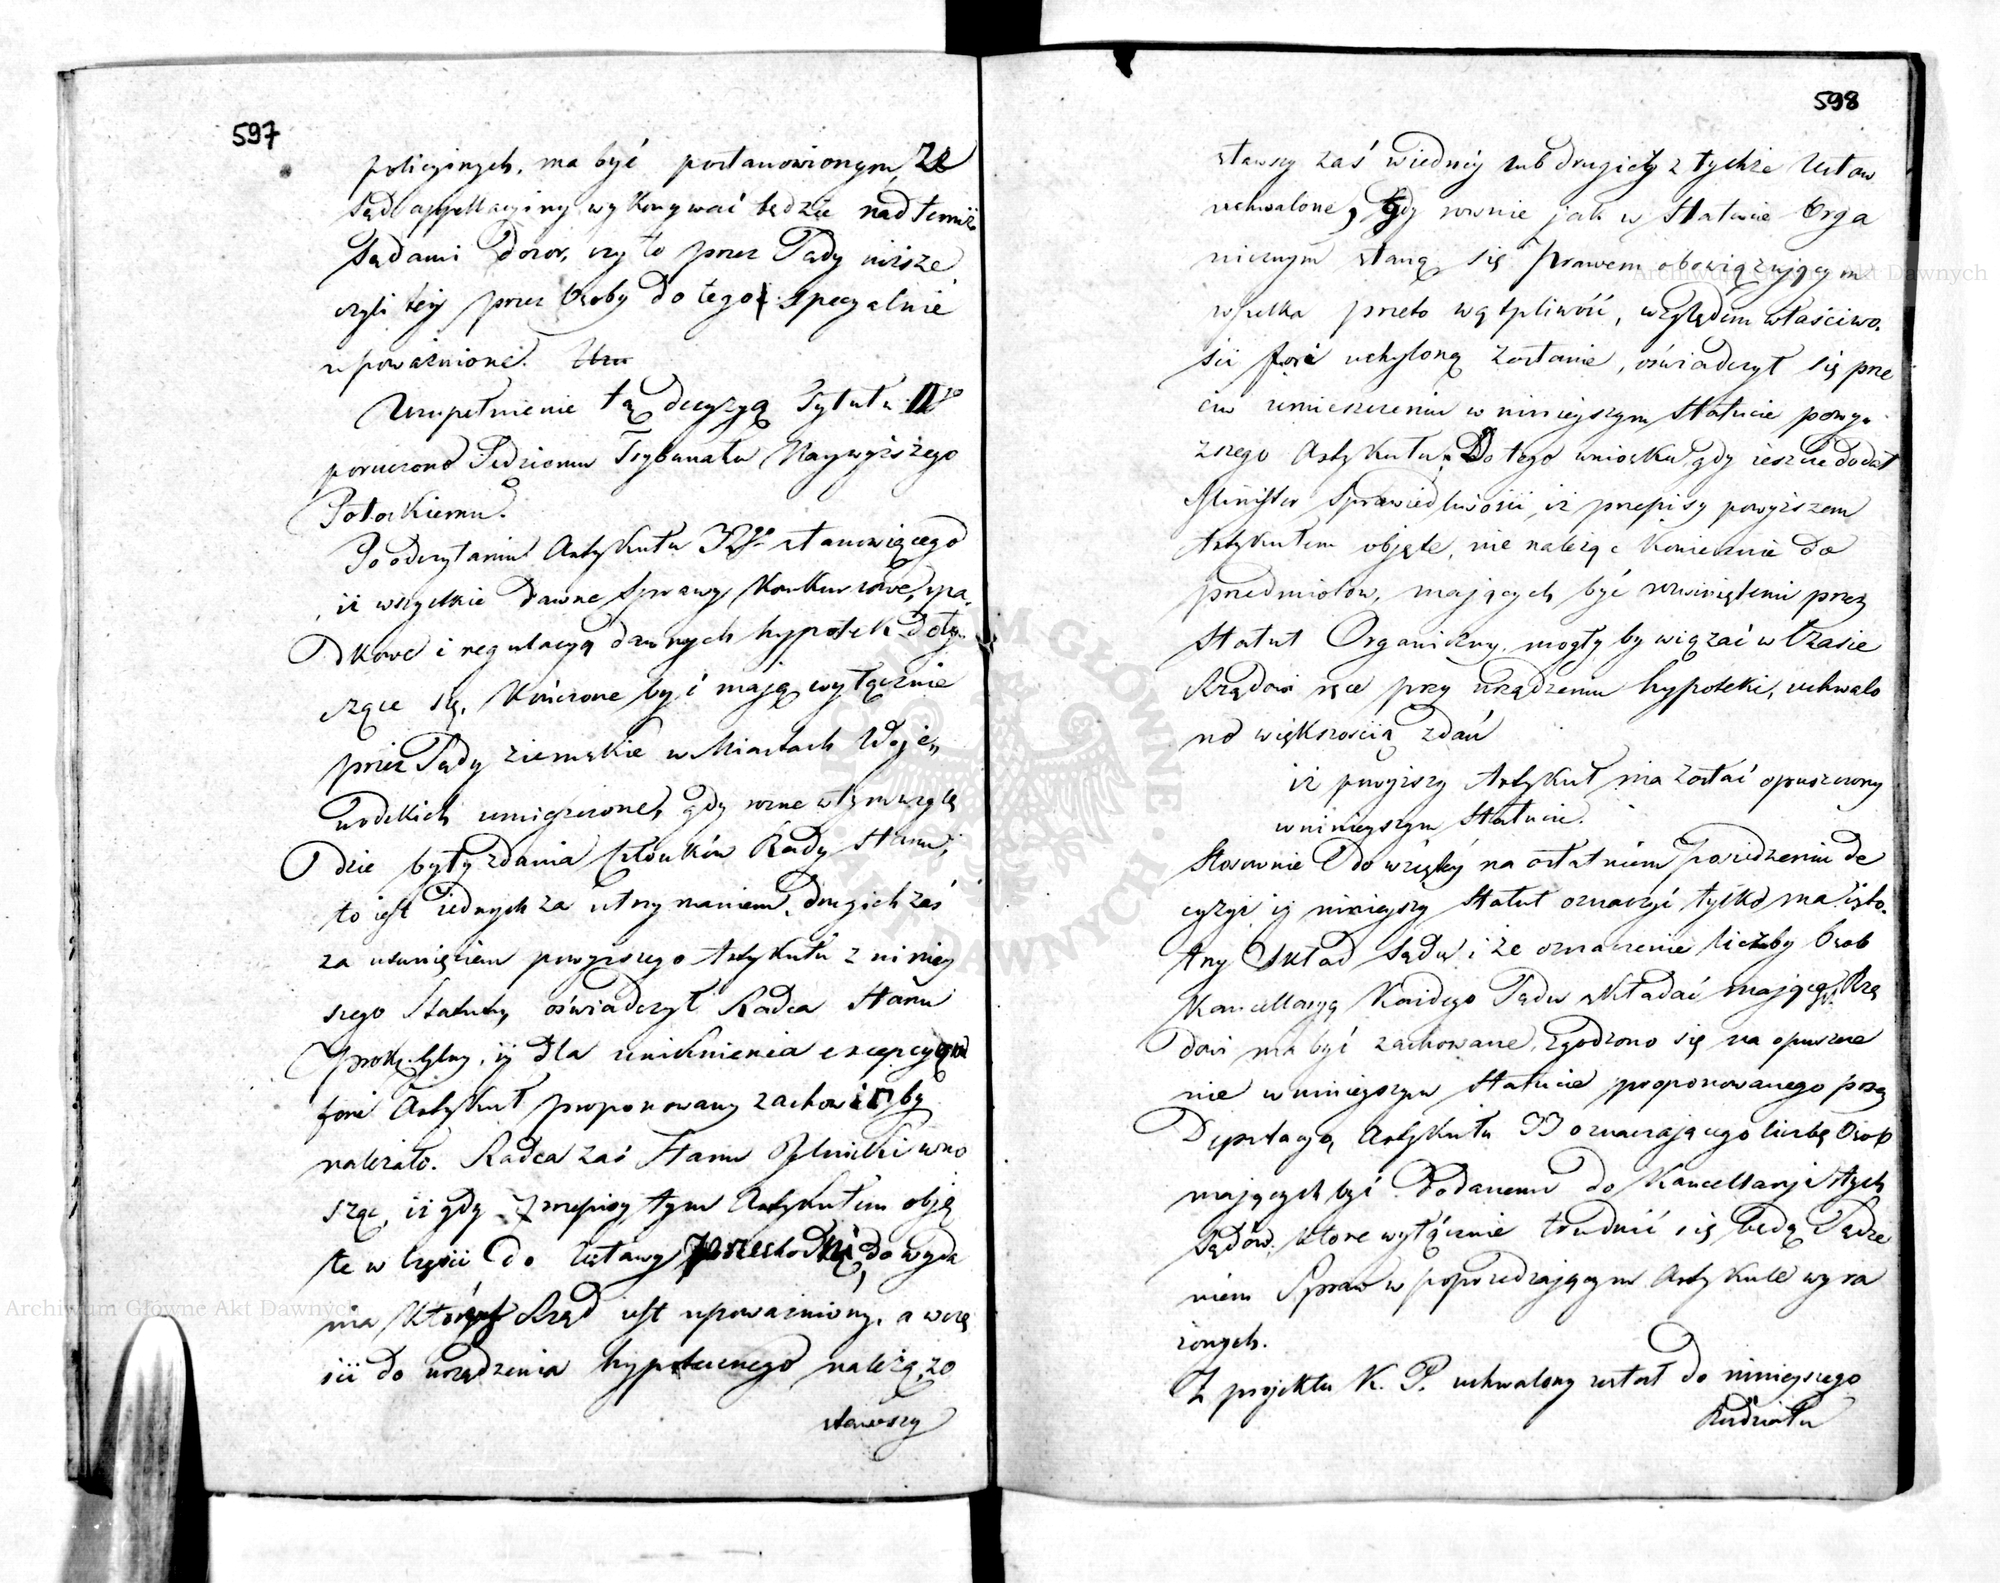 597
policyinych, ma być postanowionym, że
Sąd appellacyiny wykonywać będzie nad temiż
Sądami Dozor, czy to przez Sądy niższe
czyli też przez Osoby do tego specyalnie
upoważnione.
Uzupełnienie tą decyzyą Tytułu II<sup>go</sup>
poruczono Sędziemu Trybunału Naywyższego
Potockiemu.
Po odczytaniu Artykułu 32<sup>go</sup> stanowiącego
iż wszystkie dawne Sprawy konkursowe, spa-
dkowe i regulacyą dawnych hypotek doty-
czące się, kończone być mają wyłącznie
przez Sądy ziemskie w Miastach Woje-
wódzkich umieszczone, gdy rózne w tym wzglę
dzie były zdania Członków Rady Stanu,
to iest iednych za utrzymaniem, drugich zaś
za usunięciem powyższego Artykułu z niniey
szego Statutu, oświadczył Radca Stanu
Prok: Glny, iż dla uniknienia excepcyi
fori Artykuł proponowany zachować by
należało. Radca zaś Stanu wno
sząc, iż gdy przepisy tym Artykułem obję
te w części do Ustawy przechodniéj, do wyda
nia któréy Rząd iest upoważniony, a w czę
ści do urządzenia hypotecznego należą, zo
stawszy
598
stawszy zaś w iednéy lub drugiéy z tychże Ustaw
uchwalone, gdy rownie jak w Statucie Orga
nicznym staną się prawem obowiązującym
wszelka przeto wątpliwość, względem właściwo-
ści fori uchyloną zostanie, oświadczył się prze
ciw umieszczeniu w ninieyszym Statucie powy-
ższego Artykułu; Do tego wniosku, gdy ieszcze dodał
Minister Sprawiedliwości, iż przepisy powyższem
Artykułem objęte, nie należąc koniecznie do
przedmiotów, mających być rozwiniętemi przez
Statut Organiczny, mogłyby wiązać w Czasie
Rządowi ręce przy urządzeniu hypoteki, uchwalo
no większością zdań
iż powyższy Artykuł ma zostać opuszczony
w ninieyszym Statucie.
Stosownie do wziętéy na ostatniem posiedzeniu de
cyzyi iż ninieyszy Statut oznaczyć tylko ma isto-
tny Skład Sądu, i że oznaczenie liczby Osob
Kancellaryą każdego Sądu składać mających Rzą
dowi ma być zachowane, zgodzono się na opuszcze
nie w ninieyszym Statucie proponowanego przez
Deputacyą Artykułu 33 oznaczającego liczbę Osob
mających być dodanemi do Kancellaryi tych
Sądów, które wyłącznie trudnić się będą Sądze
niem Spraw w poprzedzającym Artykule wyra
żonych.
Z projektu K. P. uchwalony został do ninieyszego
Rozdziału
Archiwum Główne Akt Dawnych
ARCHIWUM GŁÓWNE AKT DAWNYCH